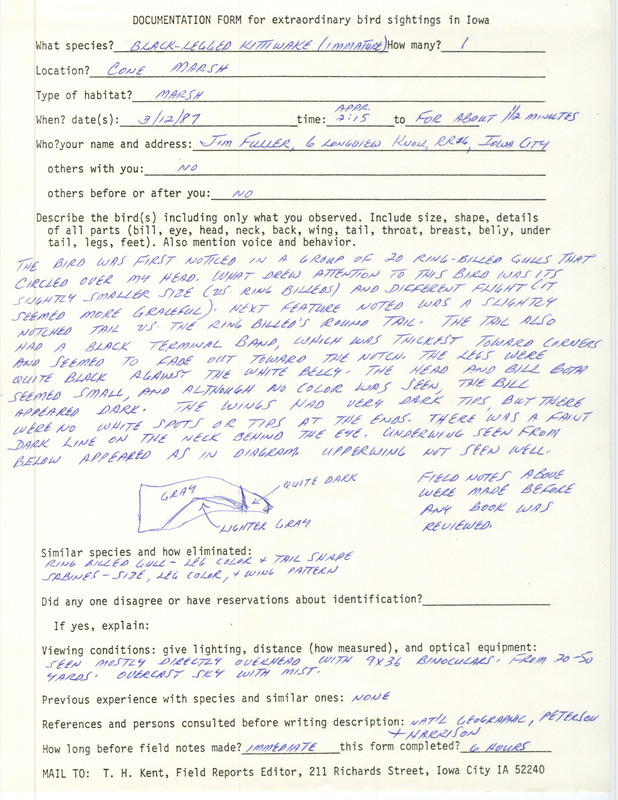 DOCUMENTATION FORM for extraordinary bird sightings in Iowa
What species? BLACK-LEGGED KITTIWAKE (IMMATURE) How many? 1
Location? CONE MARSH
Type of habitat? MARSH
When? date(s): 3/12/87 time: APPR. 2:15 to FOR ABOUT 1 1/2 MINUTES
Who?your name and address: JIM FULLER, 6 LONGVIEW KNOLL, RR#6, IOWA CITY
others with you: NO
others before or after you: NO
Describe the bird(s) including only what you observed. Include size, shape, details
of all parts (bill, eye, head, neck, back, wing, tail, throat, breast, belly, under
tail, legs, feet). Also mention voice and behavior.
THE BIRD WAS FIRST NOTICED IN A GROUP OF 20 RING-BILLED GULLS THAT
CIRCLED OVER MY HEAD. WHAT DREW ATTENTION TO THIS BIRD WAS ITS
SLIGHTLY SMALLER SIZE (VS. RING BILLEDS) AND DIFFERENT FLIGHT (IT
SEEMED MORE GRACEFUL). NEXT FEATURE NOTED WAS A SLIGHTLY
NOTCHED TAIL VS. THE RING BILLED'S ROUND TAIL. THE TAIL ALSO
HAD A BLACK TERMINAL BAND, WHICH WAS THICKEST TOWARD CORNERS
AND SEEMED TO FADE OUT TOWARD THE NOTCH. THE LEGS WERE
QUITE BLACK AGAINST THE WHITE BELLY. THE HEAD AND BILL BOTH
SEEMED SMALL, AND ALTHOUGH NO COLOR WAS SEEN, THE BILL
APPEARED DARK. THE WINGS HAD VERY DARK TIPS, BUT THERE
WERE NO WHITE SPOTS OR TIPS AT THE ENDS. THERE WAS A FAINT
DARK LINE ON THE NECK BEHIND THE EYE. UNDERWING SEEN FROM
BELOW APPEARED AS IN DIAGRAM. UPPERWING NOT SEEN WELL.
GRAY
QUITE DARK
LIGHTER GRAY
FIELD NOTES ABOVE
WERE MADE BEFORE
ANY BOOK WAS
REVIEWED.
Similar species and how eliminated:
RING BILLED GULL - LEG COLOR + TAIL SHAPE
SABINES - SIZE, LEG COLOR, + WING PATTERN
Did any one disagree or have reservations about identification?
If yes, explain:
Viewing conditions: give lighting, distance (how measured), and optical equipment:
SEEN MOSTLY DIRECTLY OVERHEAD WITH 9X36 BINOCULARS. FROM 20-50
YARDS. OVERCAST SKY WITH MIST.
Previous experience with species and similar ones: NONE
References and persons consulted before writing description: NAT'L GEOGRAPHIC, PETERSON
+ HARRISON
How long before field notes made? IMMEDIATE this form completed? 6 HOURS
MAIL TO: T. H. Kent, Field Reports Editor, 211 Richards Street, Iowa City IA 52240